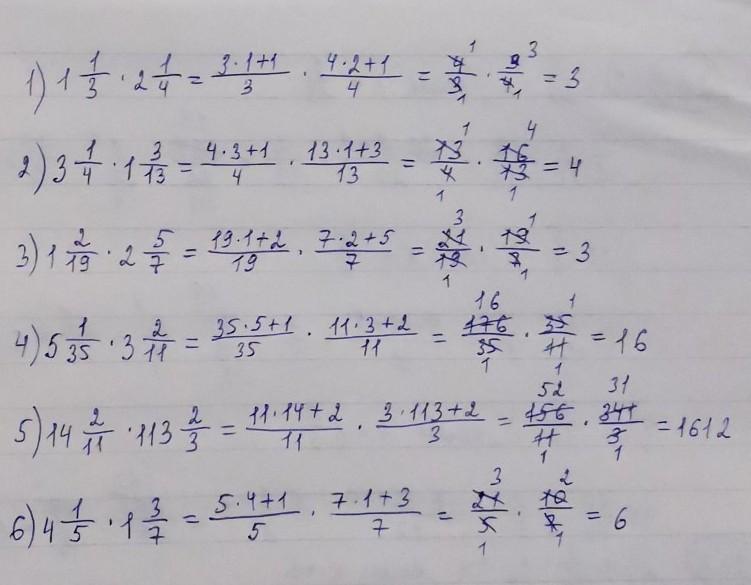 1) 1 1/3 · 2 1/4 = (3·1+1)/3 · (4·2+1)/4 = 4/3 · 9/4 = 3
2) 3 1/4 · 1 3/13 = (4·3+1)/4 · (13·1+3)/13 = 13/4 · 16/13 = 4
3) 1 2/19 · 2 5/7 = (19·1+2)/19 · (7·2+5)/7 = 21/19 · 19/7 = 3
4) 5 1/35 · 3 2/11 = (35·5+1)/35 · (11·3+2)/11 = 176/35 · 35/11 = 16
5) 14 2/11 · 113 2/3 = (11·14+2)/11 · (3·113+2)/3 = 156/11 · 341/3 = 1612
6) 4 1/5 · 1 3/7 = (5·4+1)/5 · (7·1+3)/7 = 21/5 · 10/7 = 6